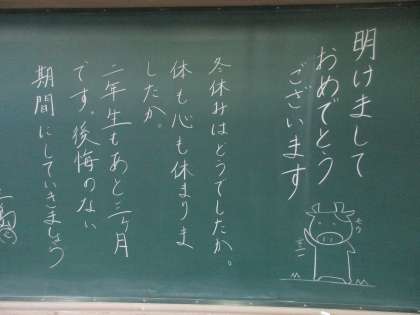 明けまして
おめでとう
ございます
冬休みはどうでしたか。
体も心も休まりま
したか。
二年生もあと三ヶ月
です。後悔のない
期間にしていきましょう
モウ